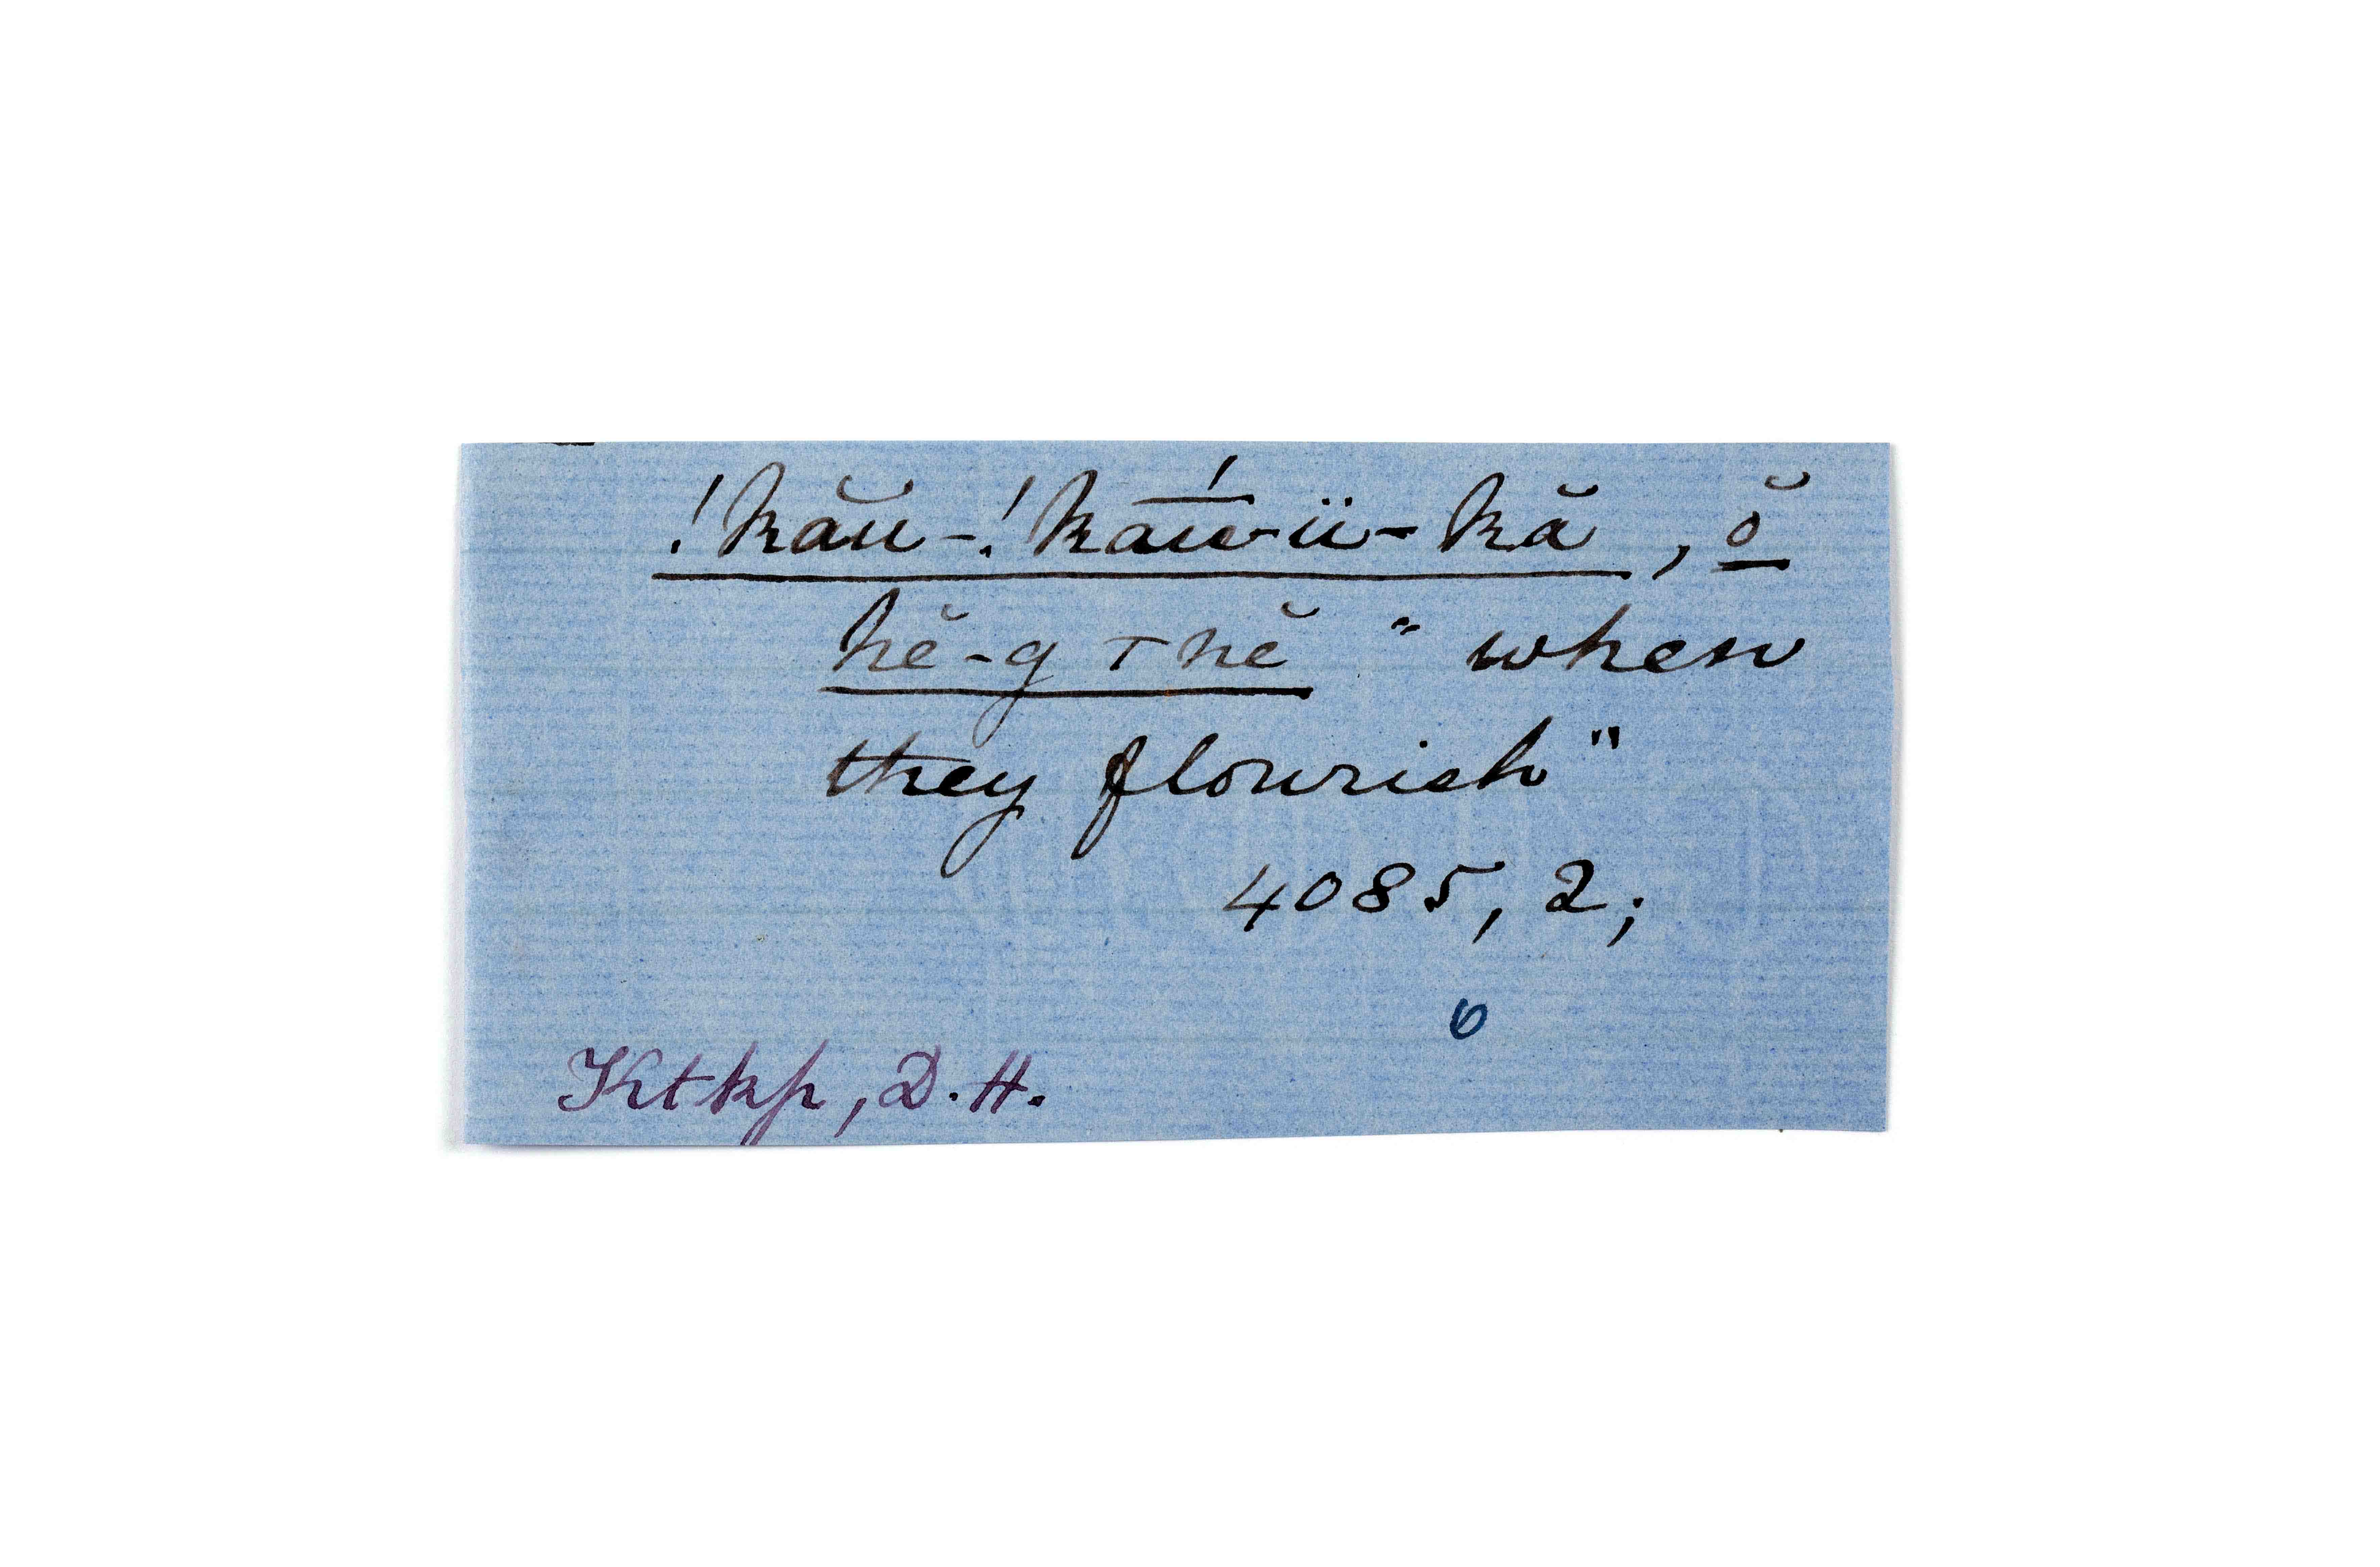 !kău-!kā́u-ü-kă, ŏ
hĕ-g ⊤ hĕ "when
they flourish"
4085, 2;
6
Ktkp, D.H.